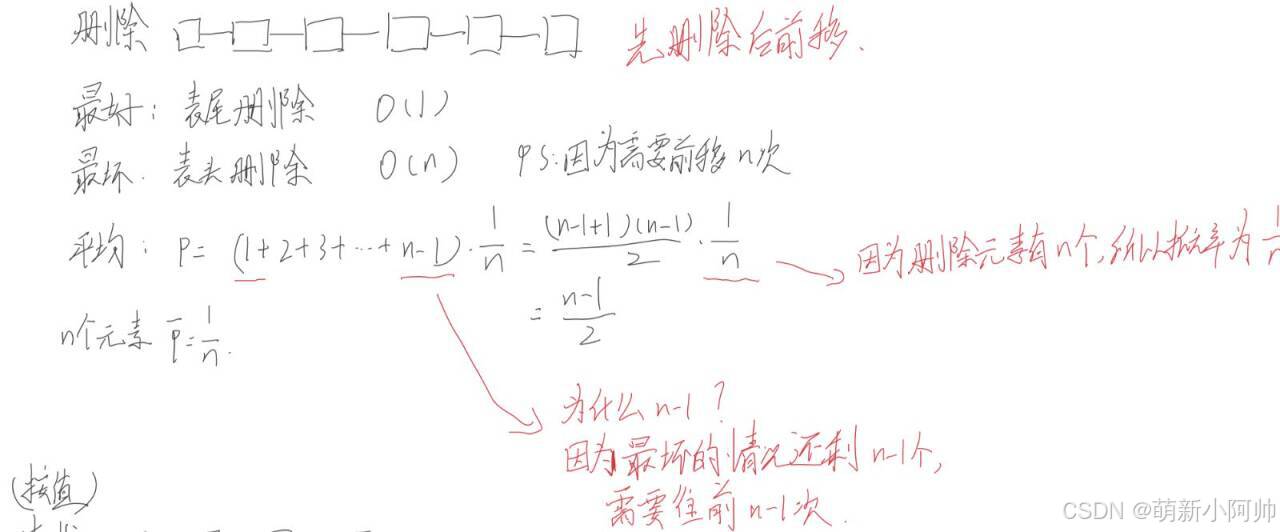 删除 先删除后前移.
最好: 表尾删除 O(1)
最坏. 表头删除 O(n) PS:因为需要前移n次
平均: P= (1+2+3+…+n-1)·1/n = (n-1+1)(n-1)/2 · 1/n 因为删除元素有n个,所以概率为1/n
= n-1/2
n个元素 P=1/n.
为什么n-1?
因为最坏的情况还剩n-1个,
需要往前n-1次.
(按值)
CSDN @萌新小阿帅